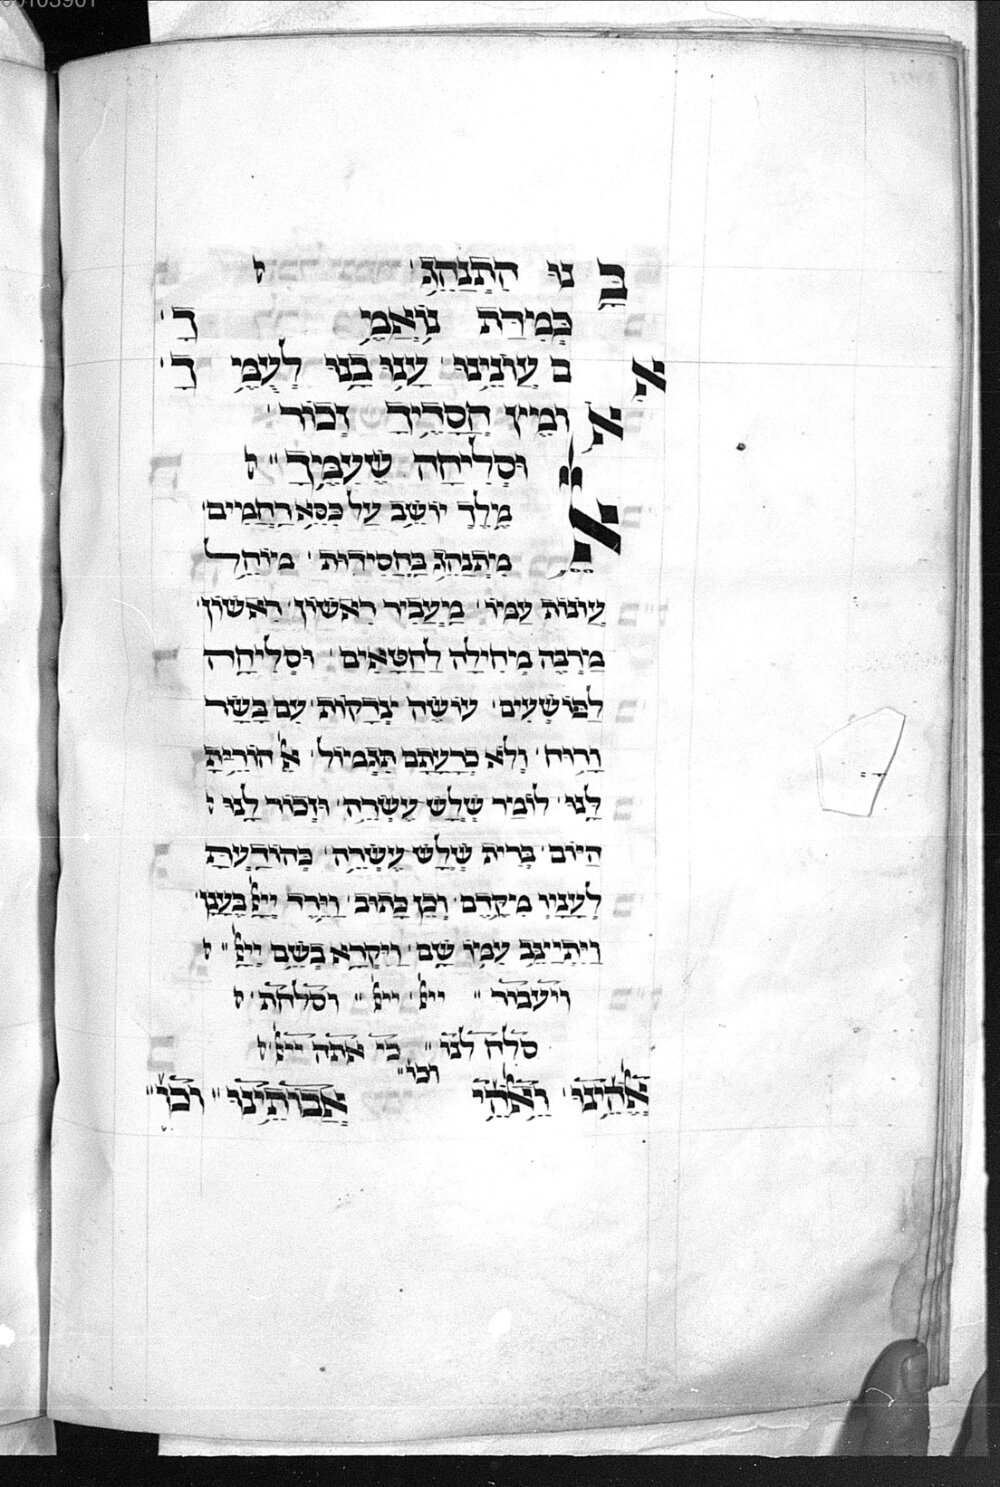 בָּנוּ הִתְנַהֵג׳
בְּמִידַּת נוֹאֲמֶ ךָ׳
אִ ם עֲוֹנֵינוּ עָנוּ בָנוּ לְעַמֶּ ךָ׳
אוֹמֶץ חֲסָדֶיךָ זְכוֹר׳
וּסְלִיחָה שֶׁעִמֶּךָ״
אֵל מֶלֶךְ יוֹשֵׁב עַל כִּסֵּא רַחֲמִים׳
מִתְנַהֵג בַּחֲסִידוּת׳ מוֹחֵל
עֲוֹנוֹת עַמּוֹ׳ מַעֲבִיר רִאשׁוֹן רִאשׁוֹן׳
מַרְבֶּה מְחִילָה לַחַטָּאִים׳ וּסְלִיחָה
לַפּוֹשְׁעִים׳ עוֹשֶׂה צְדָקוֹת עִם בָּשָׂר
וָרוּחַ׳ וְלֹא כְרָעָתָם תִּגְמוֹל׳ אֵל הוֹרֵיתָ
לָּנוּ לוֹמַר שְׁלֹשׁ עֶשְׂרֵה׳ וּזְכוֹר לָנוּ
הַיּוֹם בְּרִית שְׁלֹשׁ עֶשְׂרֵה׳ כְּהוֹדַעְתָּ
לְעָנָיו מִקֶּדֶם׳ וְכֵן כָּתוּב׳ וַיֵּרֶד יְיָ בֶּעָנָן׳
וַיִּתְיַצֵּב עִמּוֹ שָׁם׳ וַיִּקְרָא בְשֵׁם יְיָ״
ויעבור״ ייי׳ ייי״ וסלחת׳
סלח לנו״ כי אתה ייי
וכו׳״
אֱלֹהֵינוּ׳ וֵאלֹהֵי אֲבוֹתֵינוּ״ וכו׳״